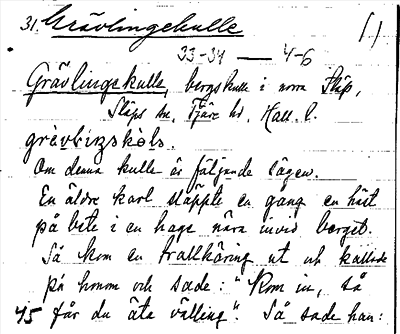 31. Grävlingekulle 1)
33-34 — 4-6
Grävlingskulle, bergskulle i norra Släp,
Släps sn, Fjäre hd, Hall. l.
Om denna kulle är följande sägen.
En äldre karl släppte en gång en häst
på bete i en hage nära invid berget.
Så kom en trollkäring ut och kallade
på honom och sade: "Kom in, så
45 får du äta välling". Så sade han: